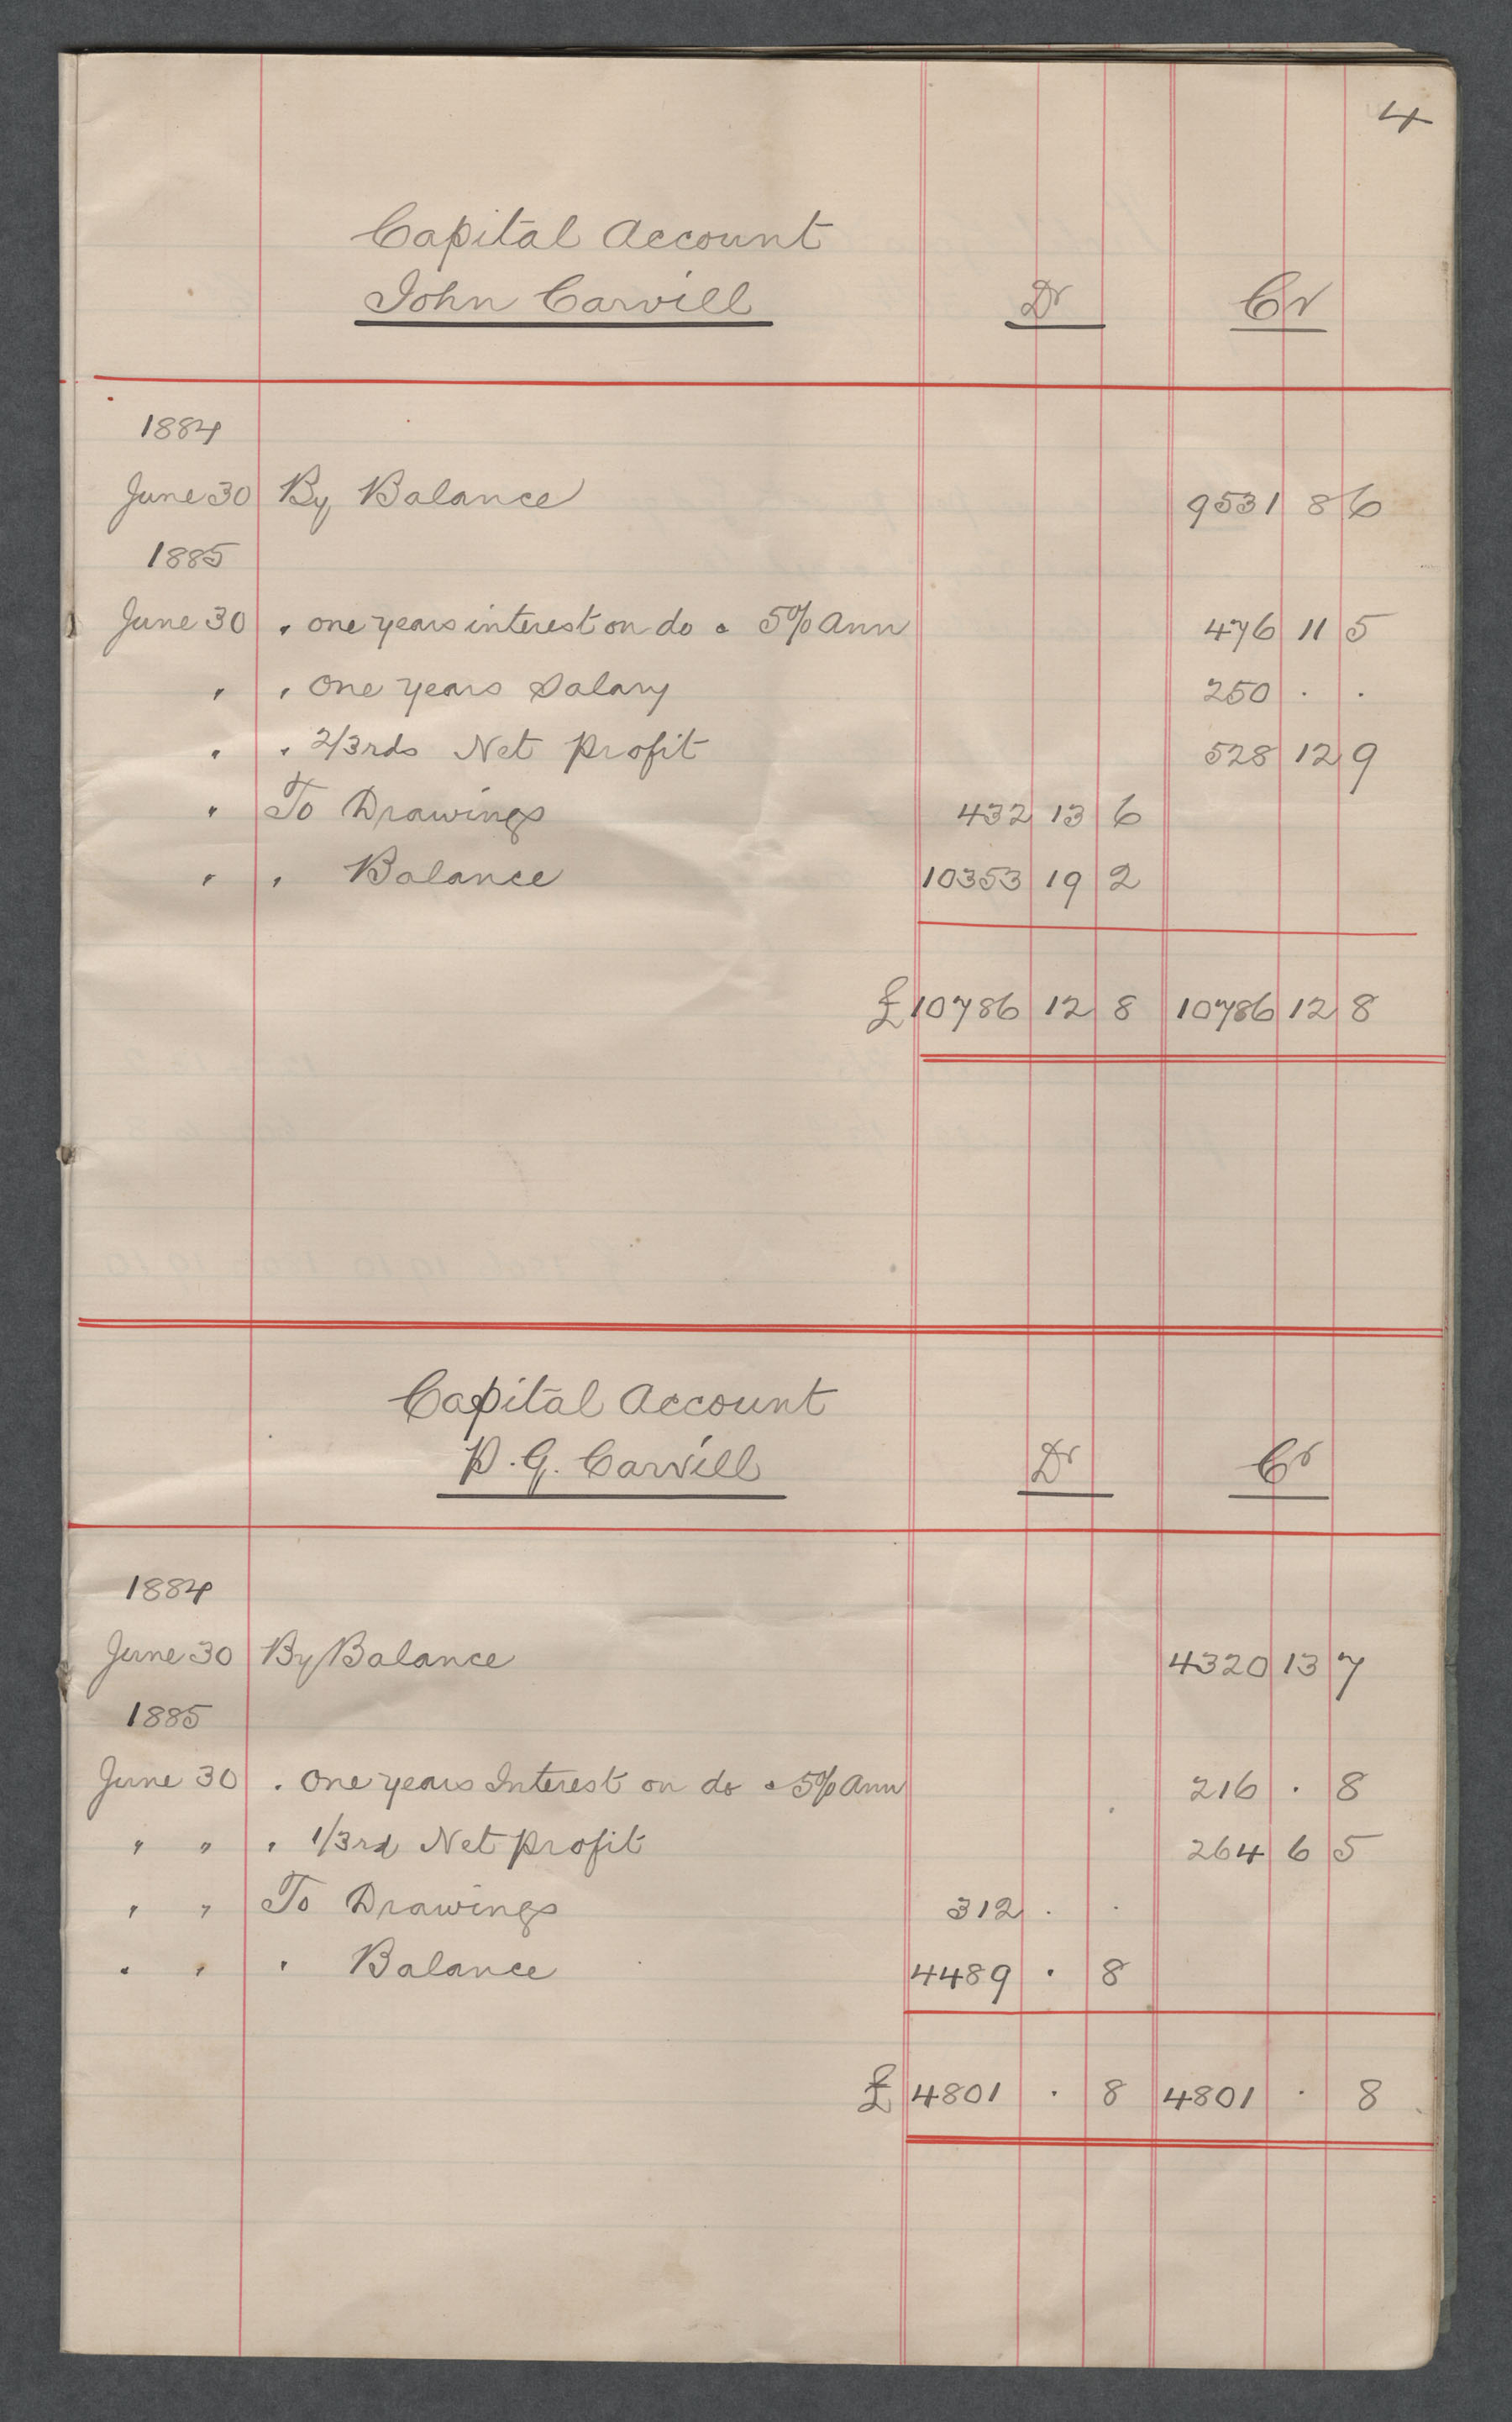 4
Capital Account
John Carvill Dr Cr
1884
June 30 By Balance 9531 8 6
1885
June 30 " one years interest on do @ 5% Ann 476 11 5
" " One years Salary 250 . .
" " 2/3rds Net Profit 528 12 9
" To Drawings 432 13 6
" " Balance 10353 19 2
£ 10786 12 8 10786 12 8
Capital Account
P. G. Carvill Dr Cr
1884
June 30 By Balance 4320 13 7
1885
June 30 " One years Interest on do @ 5% Ann 216 . 8
" " " 1/3rd Net Profit 264 6 5
" " To Drawings 312 . .
" " " Balance 4489 . 8
£ 4801 . 8 4801 . 8